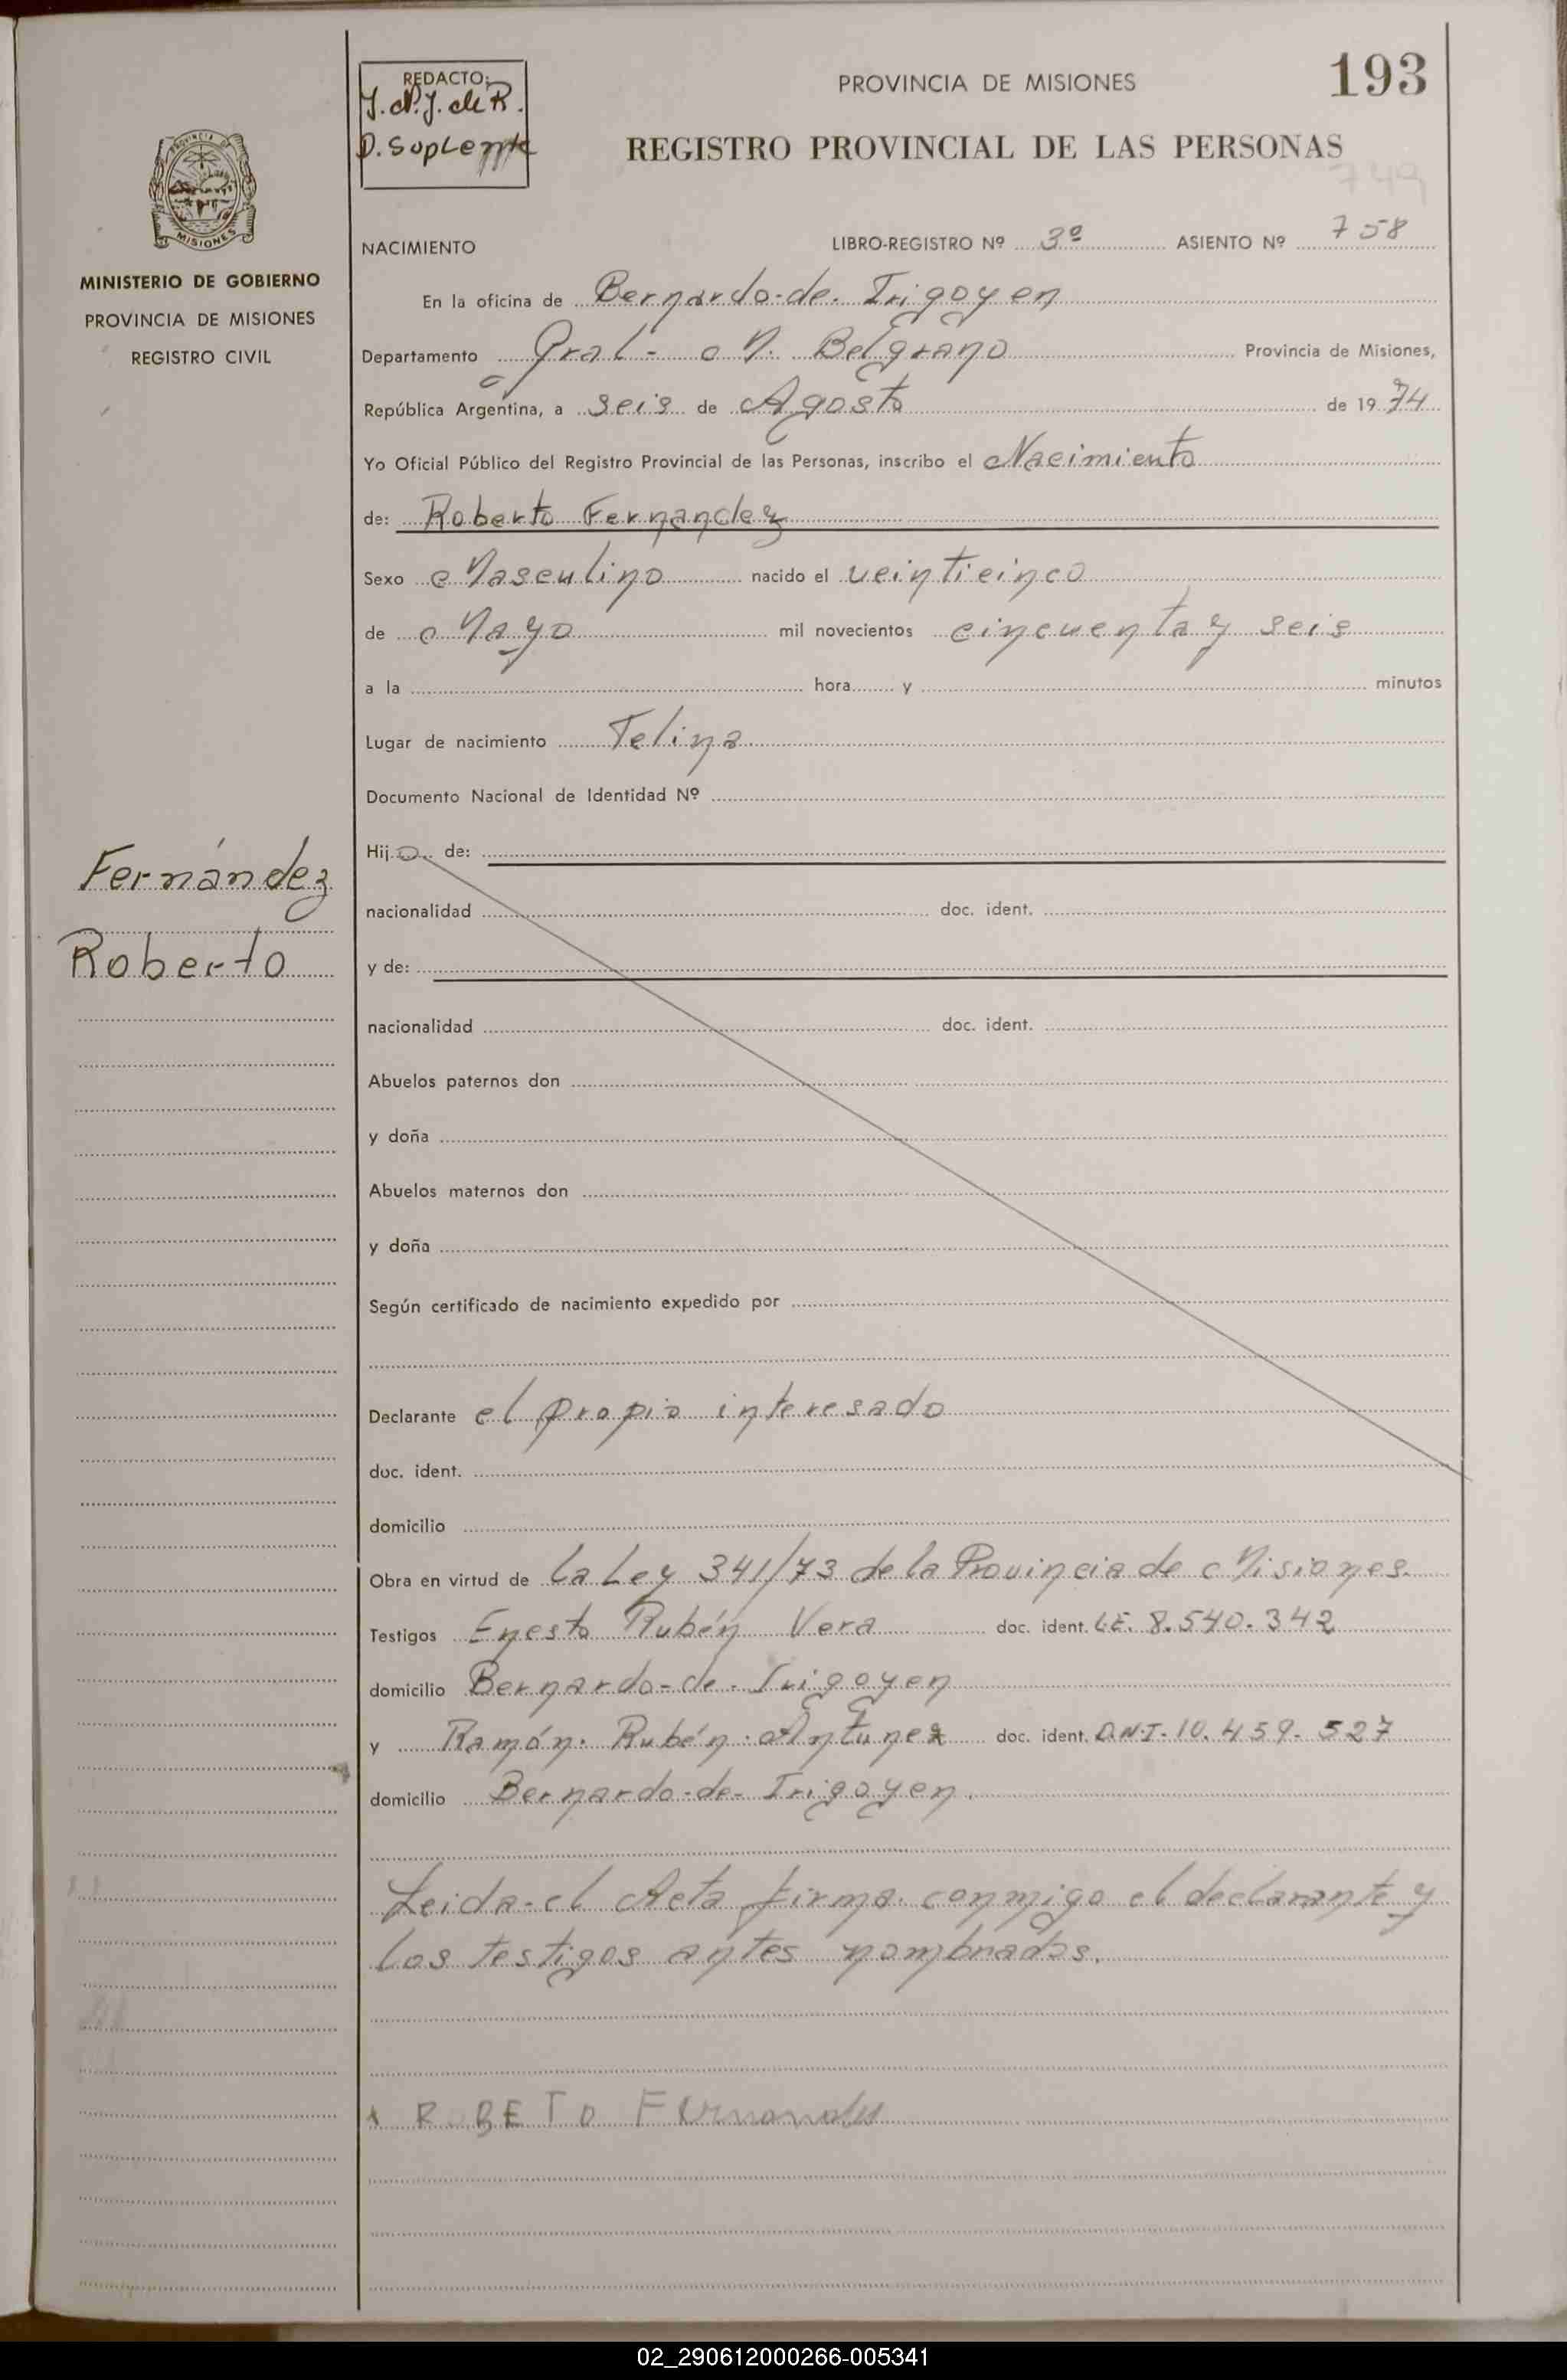 193
REDACTO:
J. M. J. de R.
D. Suplente
PROVINCIA DE MISIONES
REGISTRO PROVINCIAL DE LAS PERSONAS
749
MISIONES
MINISTERIO DE GOBIERNO
PROVINCIA DE MISIONES
REGISTRO CIVIL
NACIMIENTO LIBRO-REGISTRO Nº 3º ASIENTO Nº 758
En la oficina de Bernardo-de-Irigoyen
Departamento Gral- M. Belgrano Provincia de Misiones,
República Argentina, a seis de Agosto de 1974
Yo Oficial Público del Registro Provincial de las Personas, inscribo el Nacimiento
de: Roberto Fernandez
Sexo Masculino nacido el veinticinco
de Mayo mil novecientos cincuenta y seis
a la hora y minutos
Lugar de nacimiento Telina
Documento Nacional de Identidad Nº
Fernández
Roberto
Hijo de:
nacionalidad doc. ident.
y de:
nacionalidad doc. ident.
Abuelos paternos don
y doña
Abuelos maternos don
y doña
Según certificado de nacimiento expedido por
Declarante el propio interesado
doc. ident.
domicilio
Obra en virtud de la Ley 341/73 de la Provincia de Misiones.
Testigos Enesto Rubén Vera doc. ident. L.E. 8.540.342
domicilio Bernardo-de-Irigoyen
y Ramón Rubén Antunez doc. ident. D.N.I-10.459-527
domicilio Bernardo-de-Irigoyen.
Leida-el Acta firma conmigo el declarante y
los testigos antes nombrados.
x ROBETO Fernandes
02_290612000266-005341